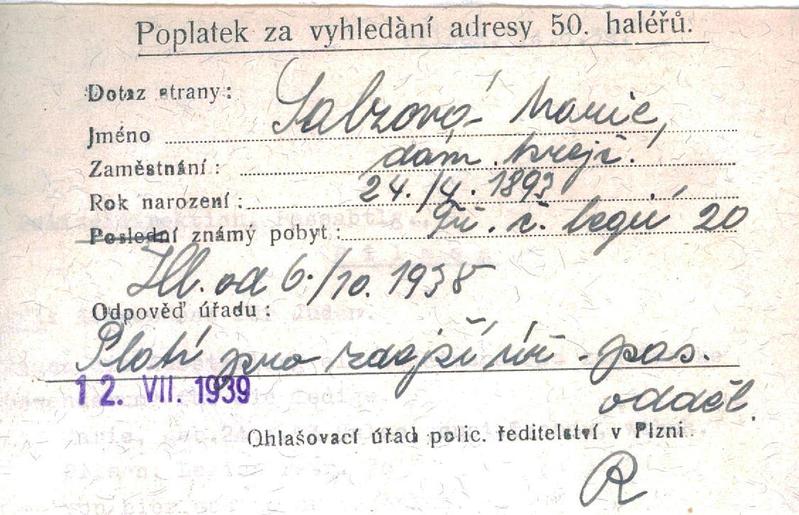 Poplatek za vyhledání adresy 50. haléřů.
Dotaz strany:
Jméno Salzová Marie,
Zaměstnání: dám. krejč.
Rok narození: 24./4. 1893
Poslední známý pobyt: Tř. č. legií 20
Hl. od 6./10. 1938
Odpověď úřadu:
Platí pro zdejší úř. pas.
12. VII. 1939 odděl.
Ohlašovací úřad polic. ředitelství v Plzni.
R